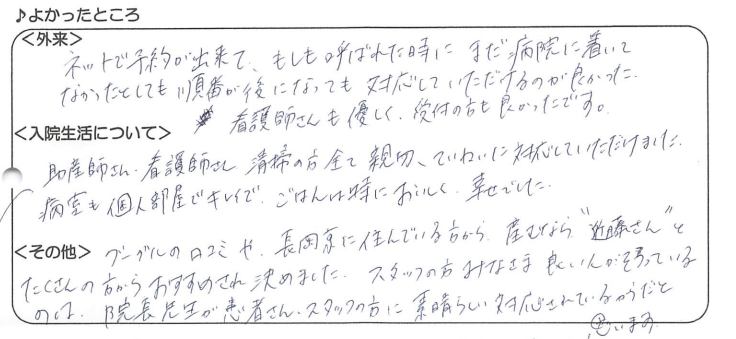 ♪よかったところ
<外来>
ネットで予約が出来て、もしも呼ばれた時にまだ病院に着いて
なかったとしても順番が後になっても対応していただけるのが良かった。
看護師さんも優しく、受付の方も良かったです。
<入院生活について>
助産師さん、看護師さん、清掃の方全て親切、ていねいに対応していただけました。
病室も個人部屋でキレイで、ごはんは特においしく、幸せでした。
<その他> グーグルの口コミや、長岡京に住んでいる方から、産むなら"近藤さん"と
たくさんの方からおすすめされ決めました。スタッフの方みなさま良い人が揃っている
のは、院長先生が患者さん、スタッフの方に素晴らしい対応されているからだと
思います